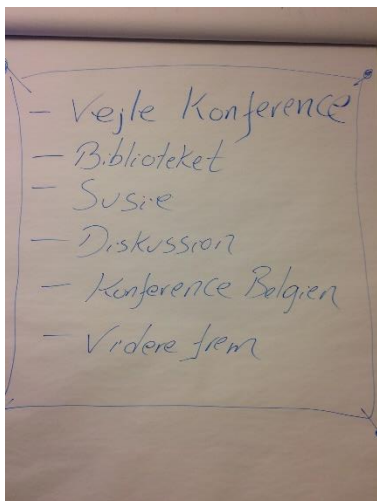 - Vejle Konference
- Biblioteket
- Susie
- Diskussion
- Konference Belgien
- Videre frem